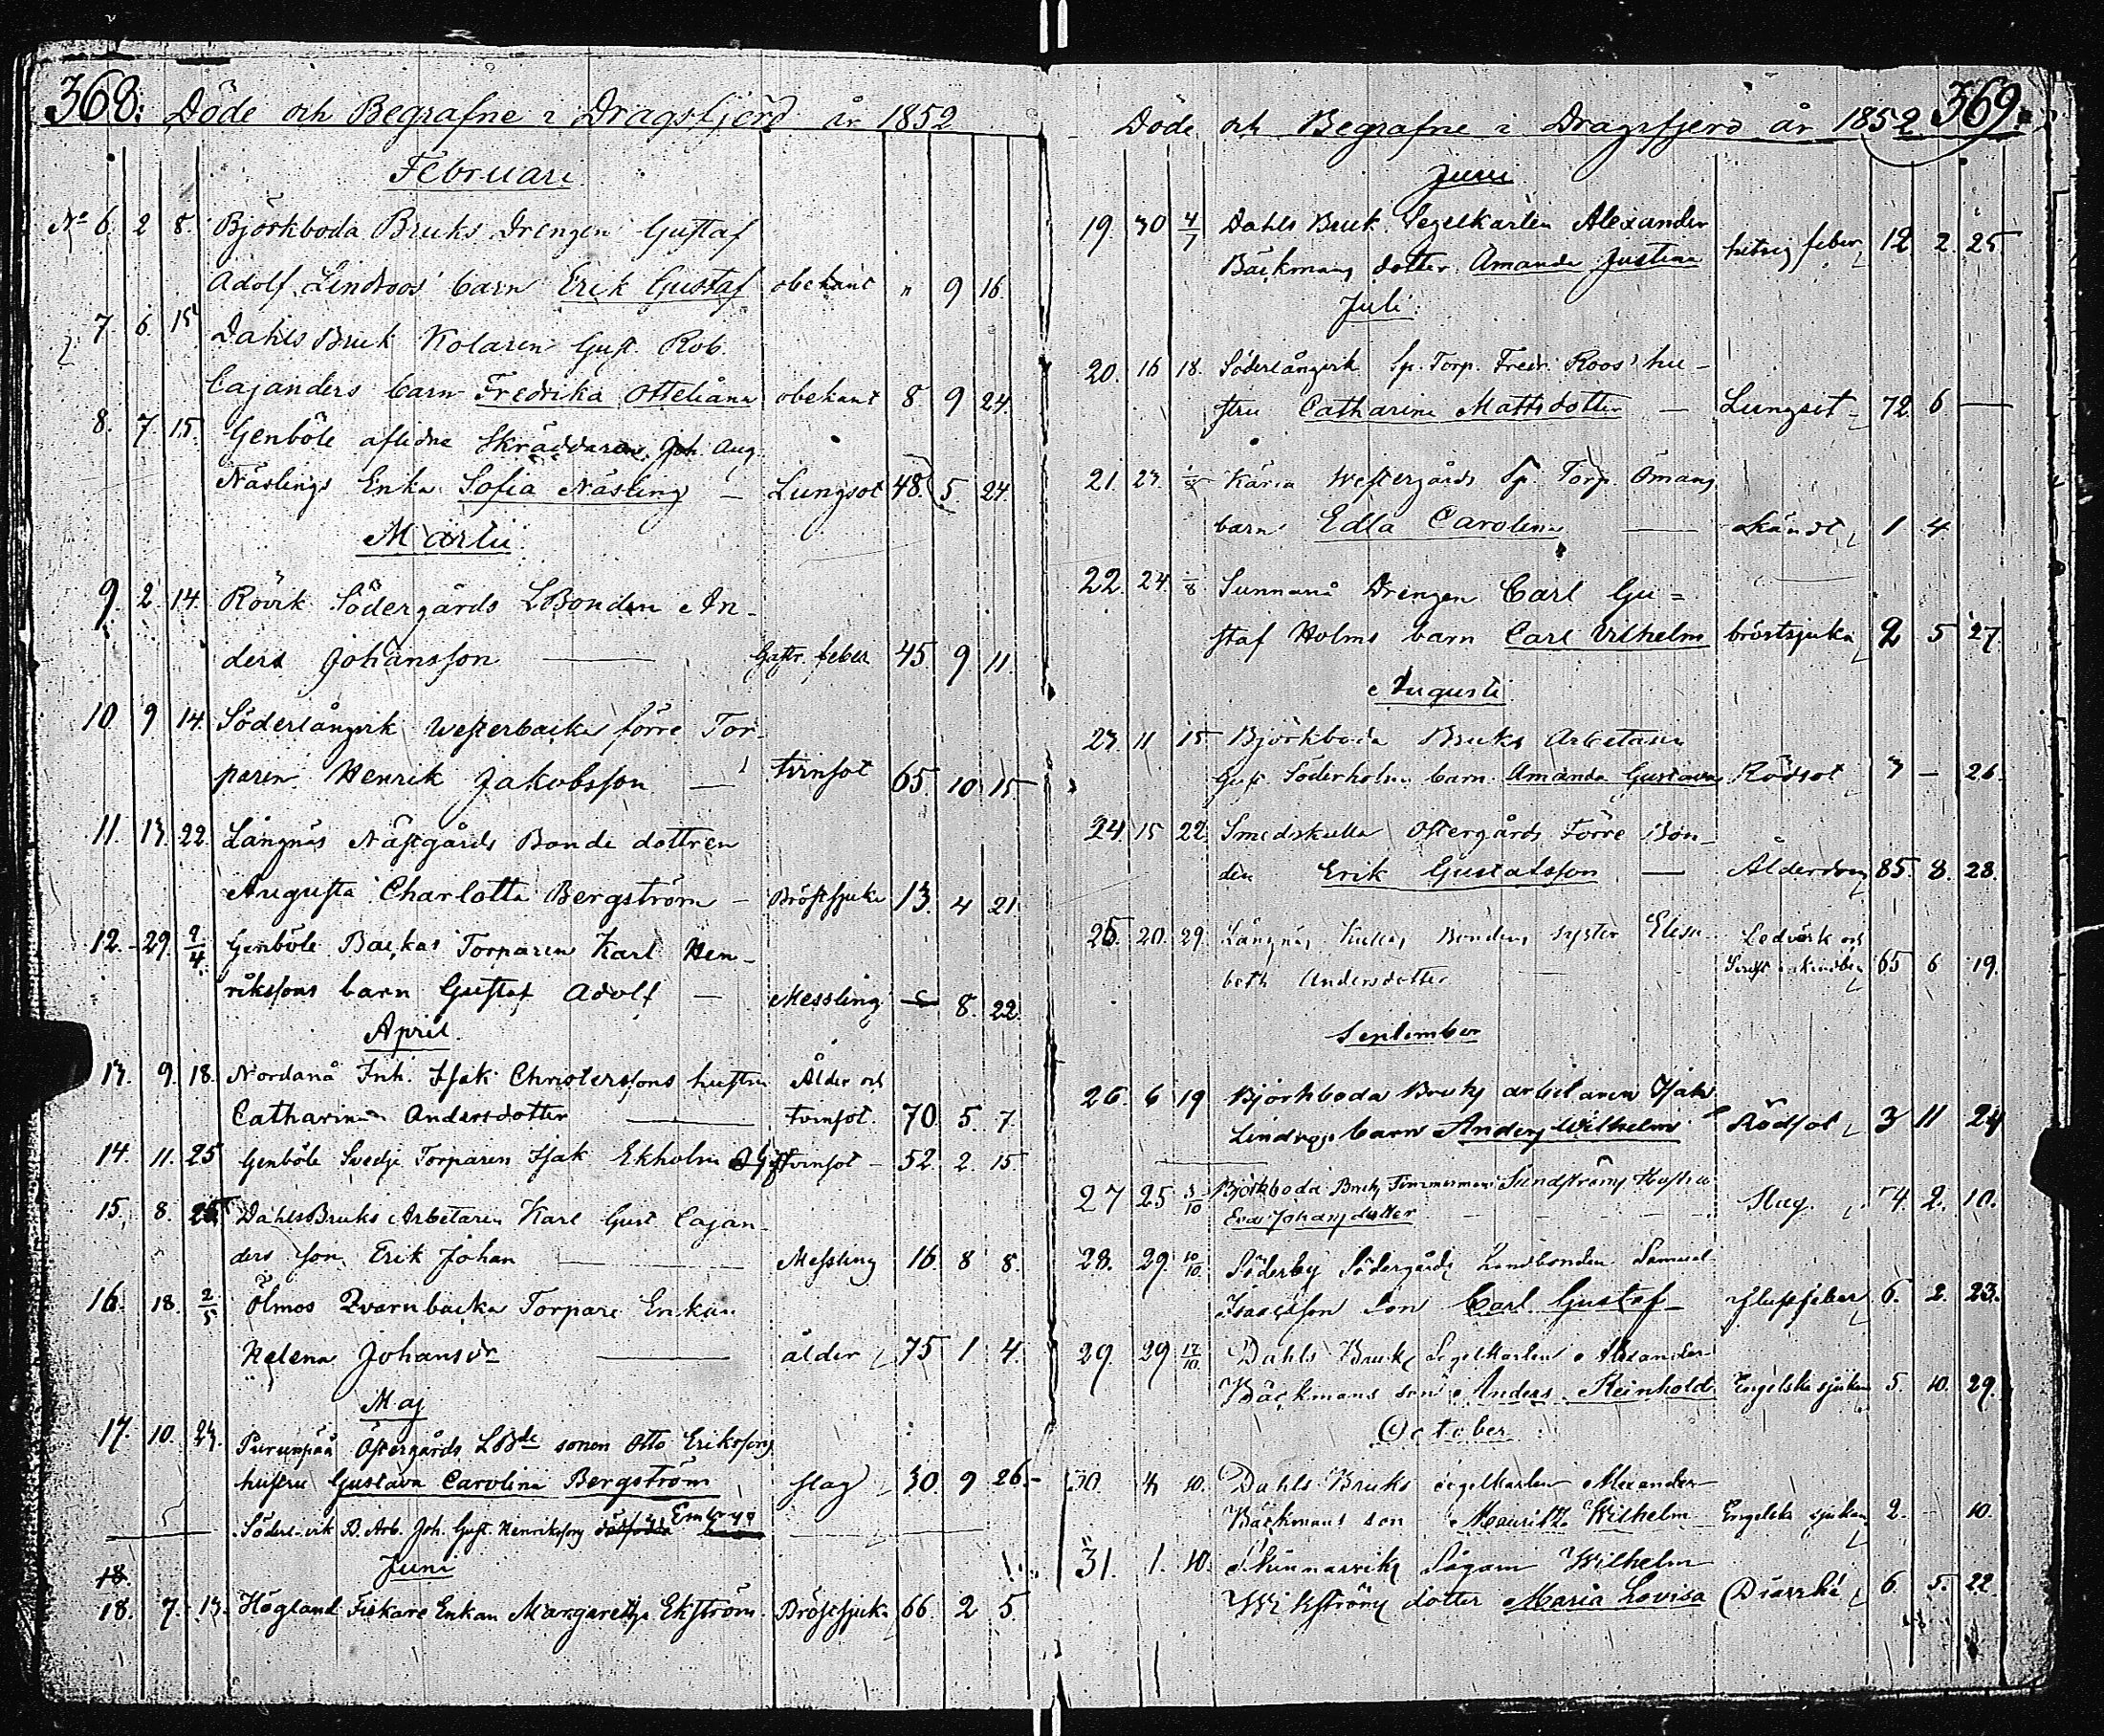 368: Döde och Begrafne i Dragsfjerd år 1852
Februari
No 6. 2 8. Björkboda Bruks Drengen Gustaf
Adolf Lindroos' barn Erik Gustaf obekant " 9 16.
7. 6. 15 Dahls Bruk Kolaren Gust. Rob.
Cajanders barn Fredrika Otteliana obekant 8 9 24.
8. 7. 15. Genböle aflidne Skräddaren Joh. Aug.
Näslings Enka Sofia Näsling — Lungsot 48. 5. 24.
Martii
9. 2. 14. Rövik Södergårds LBonden An-
ders Johansson — Gastr. feber 45. 9 11.
10. 9 14. Söderlångvik Westerbacka förre Tor-
paren Henrik Jakobsson — tvinsot 65. 10. 15
11. 13. 22. Långnäs Nästgårds Bonde dottren
Augusta Charlotta Bergström — Bröstsjuka 13. 4 21
12. 29. 9/4. Genböle Backas Torparen Karl Hen-
rikssons barn Gustaf Adolf — Messling — 8. 22.
April.
13. 9. 18. Nordanå Inh. Isak Christerssons hustru Ålder och
Catharina Andersdotter — tvinsot. 70. 5. 7.
14. 11. 25 Genböle Svedje Torparen Isak Ekholm tvinsot — 52. 2. 15
15. 8. 25 Dahls Bruks Arbetaren Karl Gust Cajan-
ders son Erik Johan — Messling 16 8 8.
16. 18. 2/5 Ölmos Qvarnbacka Torpare Enkan
Helena Johansdr — ålder 75 1 4.
Maj
17. 10. 23. Purunpää Östergårds LBde sonen Otto Erikssons
hustru Gustava Carolina Bergström slag 30 9 26.
Söderl-vik B. Arb. Joh. Gust. Henrikssons dödfödda Embryo
Juni
18.
18. 7. 13. Högland Fiskare Enkan Margaretha Ekström. Bröstsjuka 66. 2 5.
Döde och Begrafne i Dragsfjerd år 1852 369.
Juni
19. 30 4/7 Dahls Bruk Segelkarlen Alexander
Bäckmans dotter Amanda Justina hetsig feber 12. 2. 25
Juli.
20. 16 18. Söderlångvik Sp. Torp. Fredr. Roos' hu-
stru Catharina Mattsdotter — Lungsot 72. 6 —
21. 23. 1/8 Kärra Westergårds Sp. Torp. Ömans
barn Edla Carolina — okändt 1 4
22. 24. 1/8 Sunnanå Drengen Carl Gu=
staf Holms barn Carl Vilhelm bröstsjuka 2 5 27.
Augusti
23. 11 15 Björkboda Bruks Arbetaren
Gust. Söderholms barn Amanda Gustava Rödsot 3 — 26.
24. 15 22. Smedskulla Östergårds Förre Bon-
den Erik Gustafsson — Ålderdom 85. 8. 28.
25. 20. 29. Långnäs Bondens syster Elisa- Ledvärk och
beth Andersdotter 65 6 19.
September
26. 6 19 Björkboda Bruks arbetaren Isaks
Lindroos barn Anders Wilhelm Rödsot 3 11 24
27 25 3/10 Björkboda Bruks Timmerman Sundströms Hustru
Eva Johansdotter — Slag. 74. 2. 10.
28. 29 10/10. Söderby Södergårds Landbonden Samuel
Isacsson son Carl Gustaf — 6. 2. 23.
29. 29 17/10. Dahls Bruks Segelkarlen Alexander
Bäckmans son Anders Reinhold Engelska sjukan 5. 10. 29.
October
30. 4 10. Dahls Bruks segelkarlen Alexander
Bäckmans son Mauritz Wilhelm Engelska sjukan 2. — 10.
31. 1. 10. Skinnarviks Sågarn Wilhelm
Wikströms dotter Maria Lovisa Diarrhé 6 5. 22